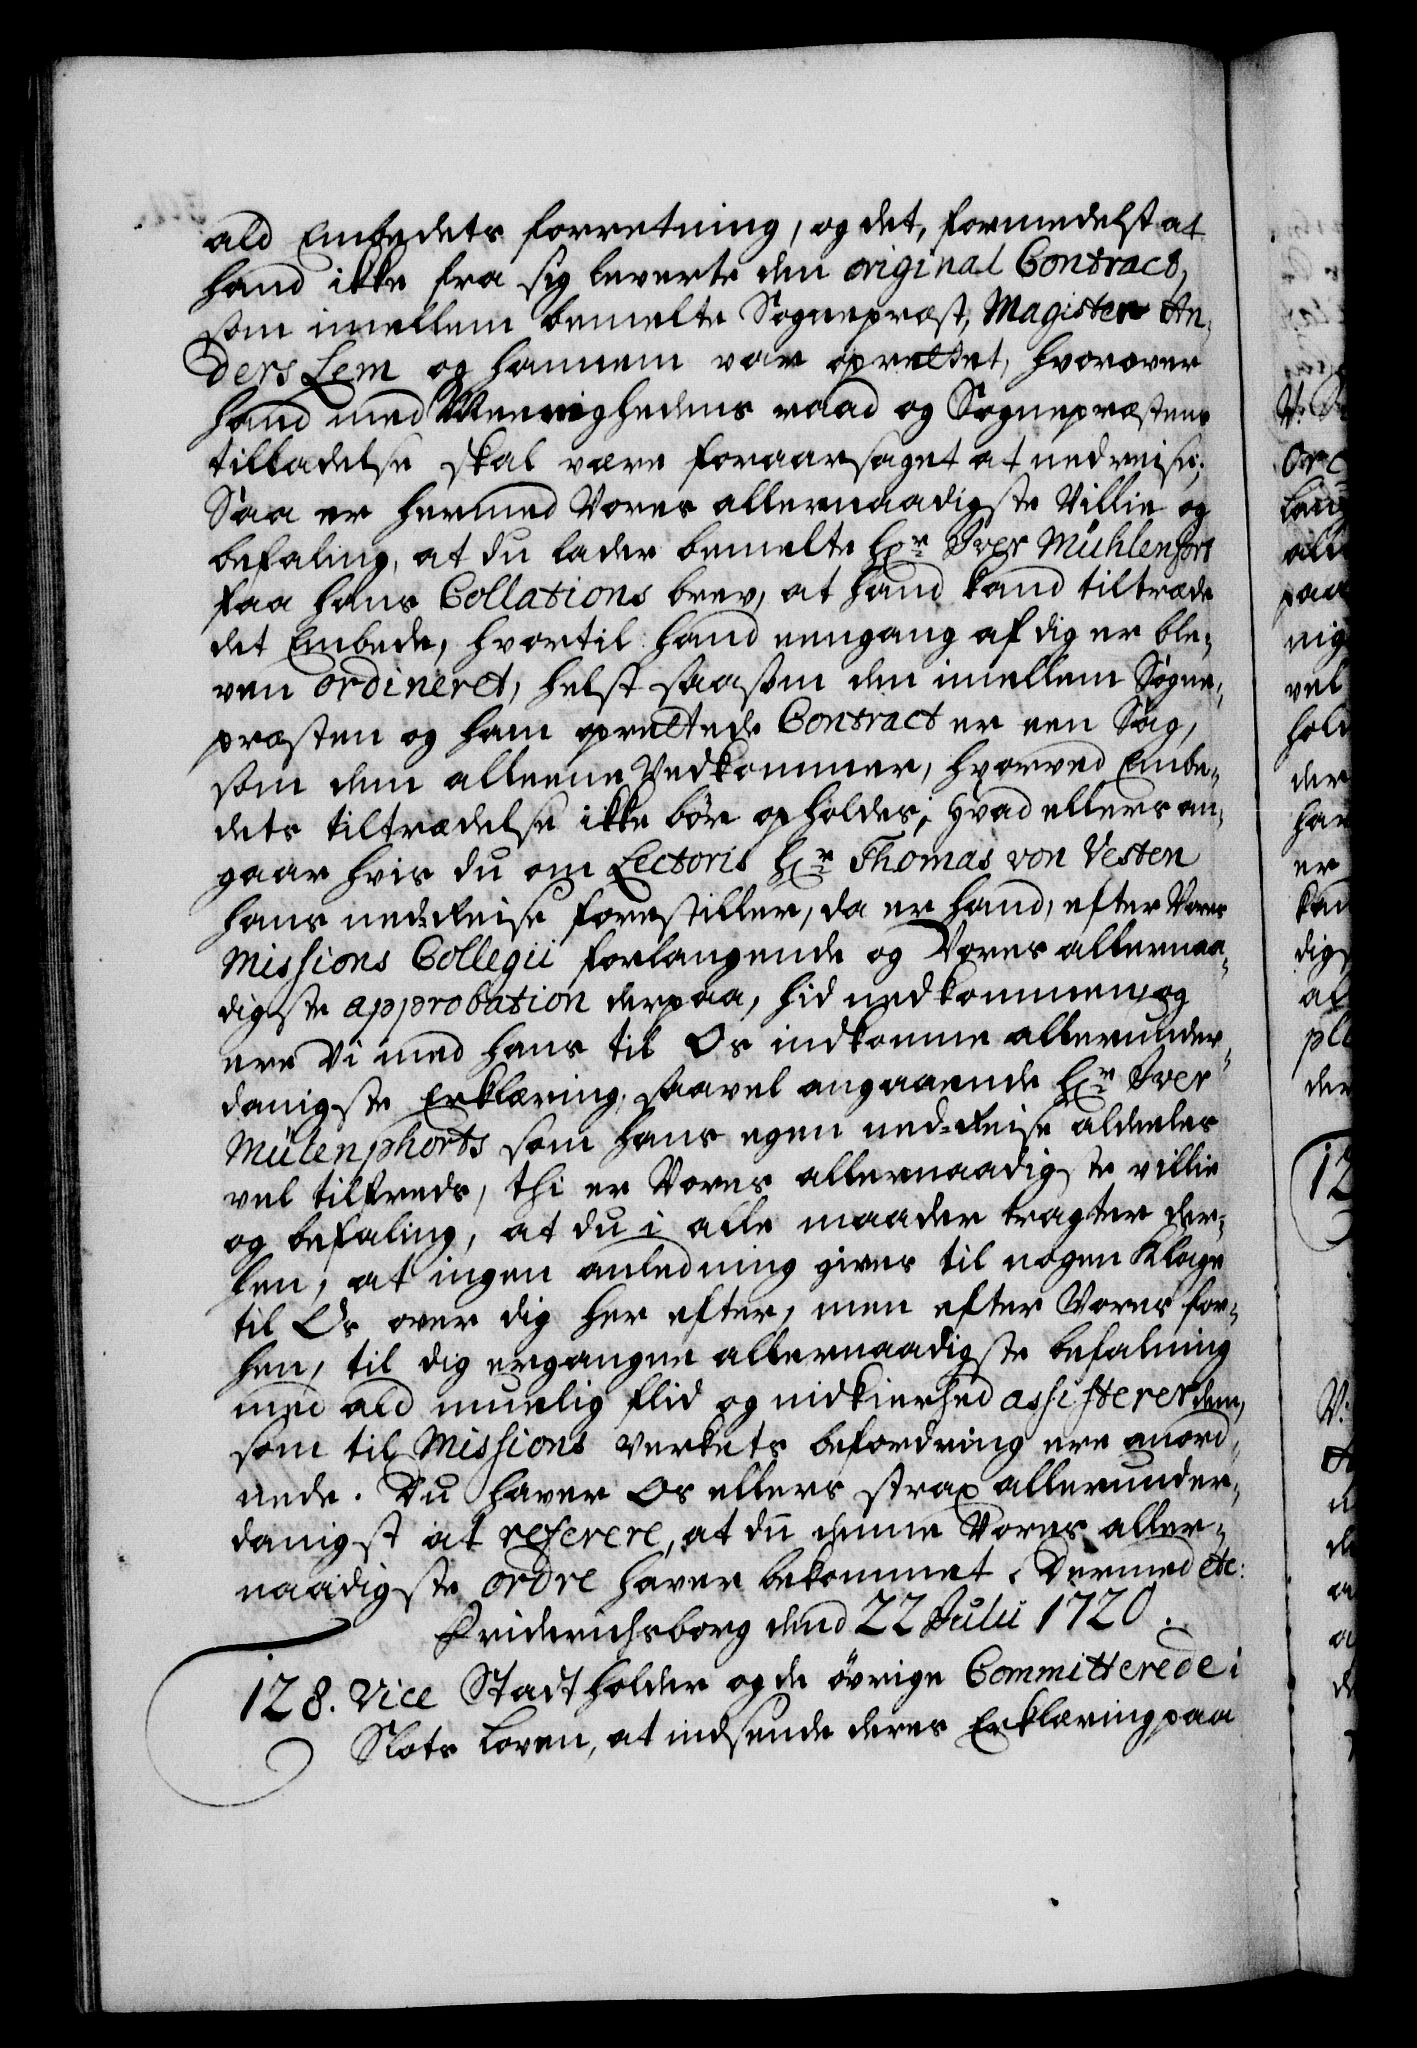 ald Embedets forretning, og det, formedelst at
hand ikke fra sig leverte den original Contract,
som imellem bemelte Sognepræst, Magister An-
ders Lem og hannem var oprettet, hvorover
hand med Meenighedens raad og Sognepræstens
tilladelse skal være foraarsaget at nedreise;
Saa er hermed Vores allernaadigste Villie og
befaling, at du lader bemelte Hr. Iver Mühlenfort
faa hans Collations brev, at hand kand tiltræde
det Embede, hvortil hand eengang af dig er ble-
ven ordineret, helst saasom den imellem Sogne-
præsten og ham oprettede Contract er een Sag,
som dem alleene Vedkommer, hvorved Embe-
dets tiltrædelse ikke bør opholdes; Hvad ellers an-
gaar hvis du om Lectoris Hr. Thomas von Vesten
hans ned-Reise forestiller, da er hand, efter Vores
Missions Collegii forlangende og Vores allernaa-
digste approbation derpaa, hid nedkommen, og
ere Vi med hans til Os indkomne allerunder-
danigste Erklæring, saavel angaaende Hr. Iver
Mülenphorts som hans egen ned-Reise aldeeles
vel tilfreds, thi er Vores allernaadigste villie
og befaling, at du i alle maader tragter der-
hen, at ingen anledning gives til nogen Klage
til Os over dig her efter, men efter Vores for-
hen, til dig ergangne allernaadigste befalning
med ald muelig flid og nidkierhed assisterer dem,
som til Missions verkets befordring ere anord-
nede. Du haver Os ellers strax allerunder-
danigst at referere, at du denne Vores aller-
naadigste ordre haver bekommet. Dermed etc:
Friderichsborg dend 22 Julii 1720.
128. Vice Stadtholder og de øvrige Committerede i
Slots Loven, at indsende deres Erklæring paa